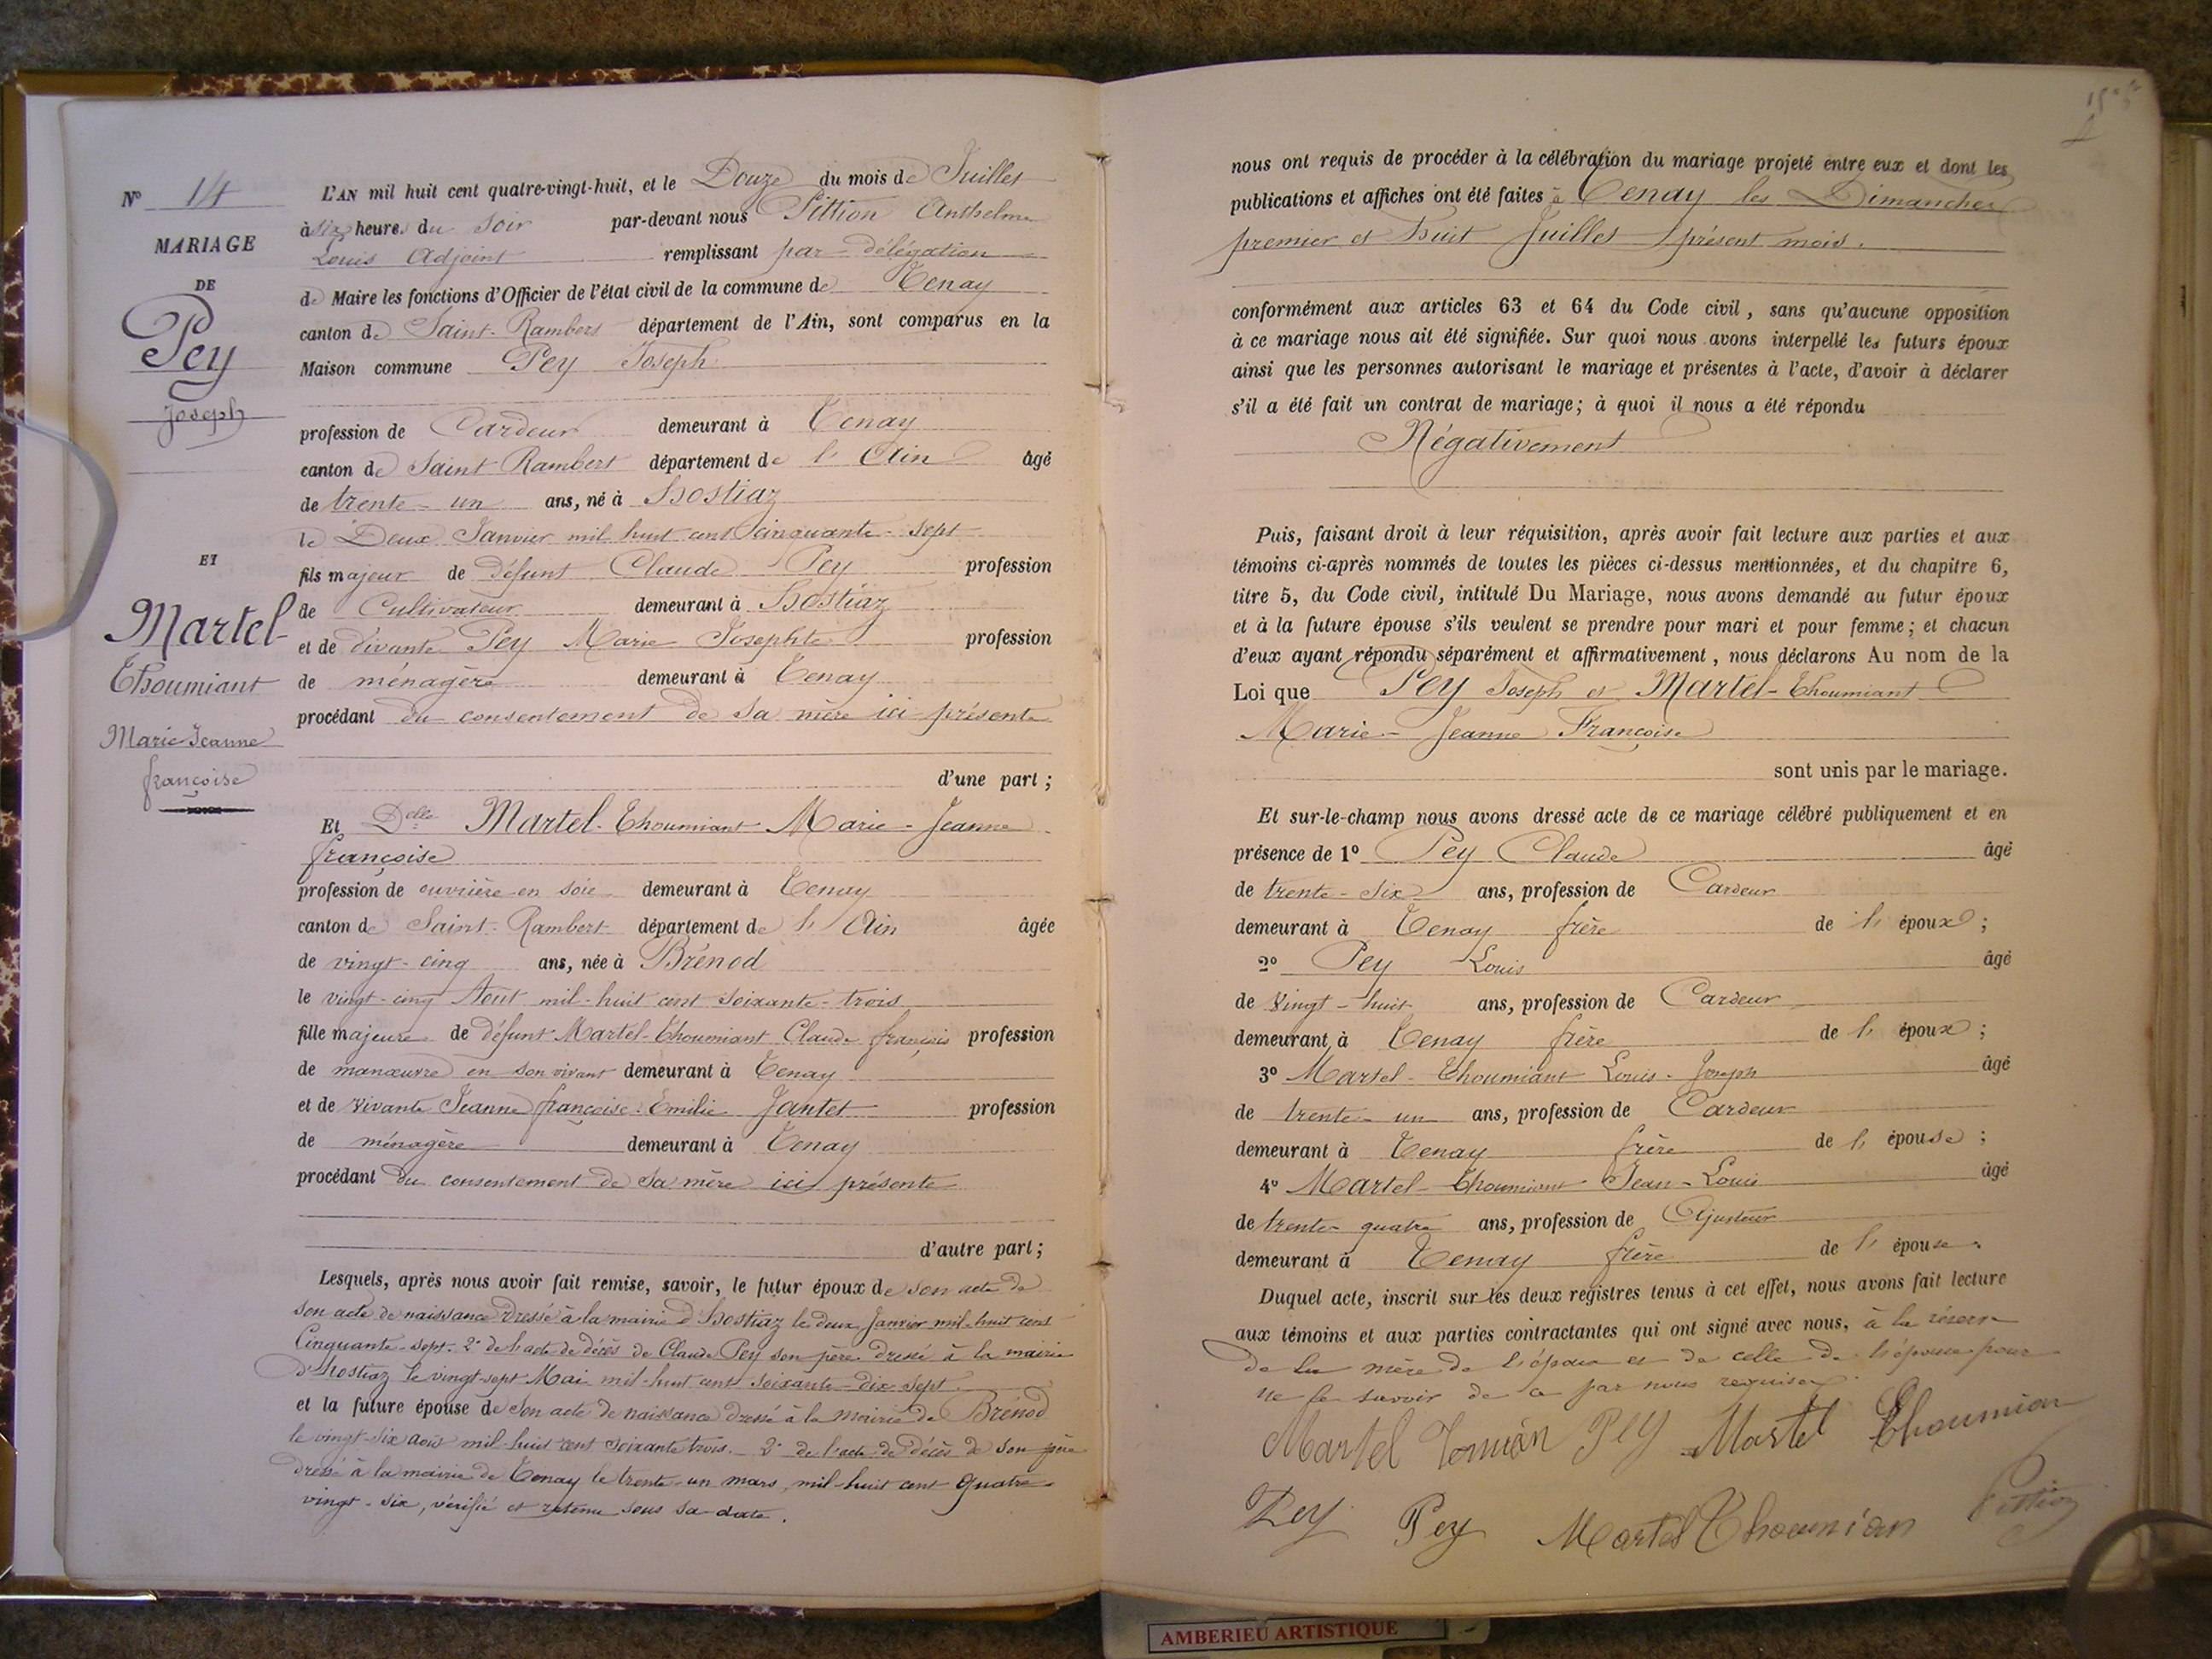 Nº 14
MARIAGE
DE
Pey
Joseph
ET
Martel-
Thoumiant
Marie Jeanne
françoise
L'AN mil huit cent quatre-vingt-huit, et le Douze du mois de Juillet
à six heures du soir par-devant nous Pittion Anthelme
Louis Adjoint remplissant par délégation
de Maire les fonctions d'Officier de l'état civil de la commune de Tenay
canton de Saint-Rambert département de l'Ain, sont comparus en la
Maison commune Pey Joseph
profession de Cardeur demeurant à Tenay
canton de Saint Rambert département de l'Ain âgé
de trente-un ans, né à Hostiaz
le Deux Janvier mil huit cent cinquante-sept
fils majeur de défunt Claude Pey profession
de Cultivateur demeurant à Hostiaz
et de vivante Pey Marie Josephte profession
de ménagère demeurant à Tenay
procédant du consentement de sa mère ici présente
d'une part ;
Et Delle Martel-Thoumiant Marie-Jeanne
françoise
profession de ouvrière en soie demeurant à Tenay
canton de Saint-Rambert département de l'Ain âgée
de vingt-cinq ans, née à Brénod
le vingt-cinq Aout mil-huit cent soixante-trois
fille majeure de défunt Martel-Thoumiant Claude françois profession
de manœuvre en son vivant demeurant à Tenay
et de vivante Jeanne françoise Emilie Jantet profession
de ménagère demeurant à Tenay
procédant du consentement de sa mère ici présente
d'autre part ;
Lesquels, après nous avoir fait remise, savoir, le futur époux de son acte de
son acte de naissance dressé à la mairie d'Hostiaz le deux Janvier mil-huit cent
Cinquante-sept. 2º de l'acte de décès de Claude Pey son père dressé à la mairie
d'Hostiaz le vingt-sept Mai mil-huit cent soixante-dix-sept
et la future épouse de son acte de naissance dressé à la mairie de Brénod
le vingt-six août mil-huit cent soixante trois. 2º de l'acte de décès de son père
dressé à la mairie de Tenay le trente-un mars, mil-huit cent quatre-
vingt-six, vérifié et retenu sous sa date.
nous ont requis de procéder à la célébration du mariage projeté entre eux et dont les
publications et affiches ont été faites à Tenay les Dimanches
premier et huit Juillet présent mois.
conformément aux articles 63 et 64 du Code civil, sans qu'aucune opposition
à ce mariage nous ait été signifiée. Sur quoi nous avons interpellé les futurs époux
ainsi que les personnes autorisant le mariage et présentes à l'acte, d'avoir à déclarer
s'il a été fait un contrat de mariage ; à quoi il nous a été répondu
Négativement
Puis, faisant droit à leur réquisition, après avoir fait lecture aux parties et aux
témoins ci-après nommés de toutes les pièces ci-dessus mentionnées, et du chapitre 6,
titre 5, du Code civil, intitulé Du Mariage, nous avons demandé au futur époux
et à la future épouse s'ils veulent se prendre pour mari et pour femme ; et chacun
d'eux ayant répondu séparément et affirmativement, nous déclarons Au nom de la
Loi que Pey Joseph et Martel-Thoumiant
Marie-Jeanne Françoise
sont unis par le mariage.
Et sur-le-champ nous avons dressé acte de ce mariage célébré publiquement et en
présence de 1º Pey Claude âgé
de trente-six ans, profession de Cardeur
demeurant à Tenay frère de l'époux ;
2º Pey Louis âgé
de vingt-huit ans, profession de Cardeur
demeurant à Tenay frère de l'époux ;
3º Martel-Thoumiant Louis-Joseph âgé
de trente-un ans, profession de Cardeur
demeurant à Tenay frère de l'épouse ;
4º Martel-Thoumiant Jean-Louis âgé
de trente-quatre ans, profession de Ajusteur
demeurant à Tenay frère de l'épouse.
Duquel acte, inscrit sur les deux registres tenus à cet effet, nous avons fait lecture
aux témoins et aux parties contractantes qui ont signé avec nous, à la réserve
de la mère de l'époux et de celle de l'épouse pour
ne le savoir de ce par nous requises.
Martel Tomian Pey Martel Thoumian
Pey Pey Martel Thoumian Pittion
AMBERIEU ARTISTIQUE